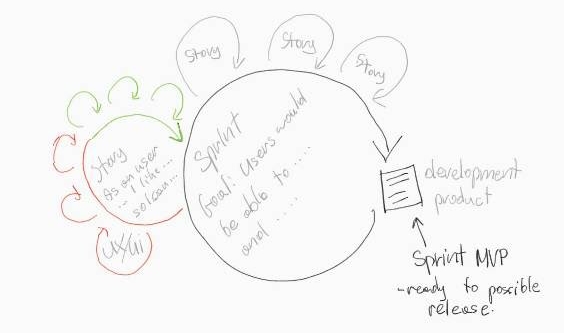 Story
Story
Story
Story
As an user
... I like...
so I can...
UX/Ui
Sprint
Goal: Users would
be able to .....
and .....
development
product
Sprint MVP
-ready to possible
release.